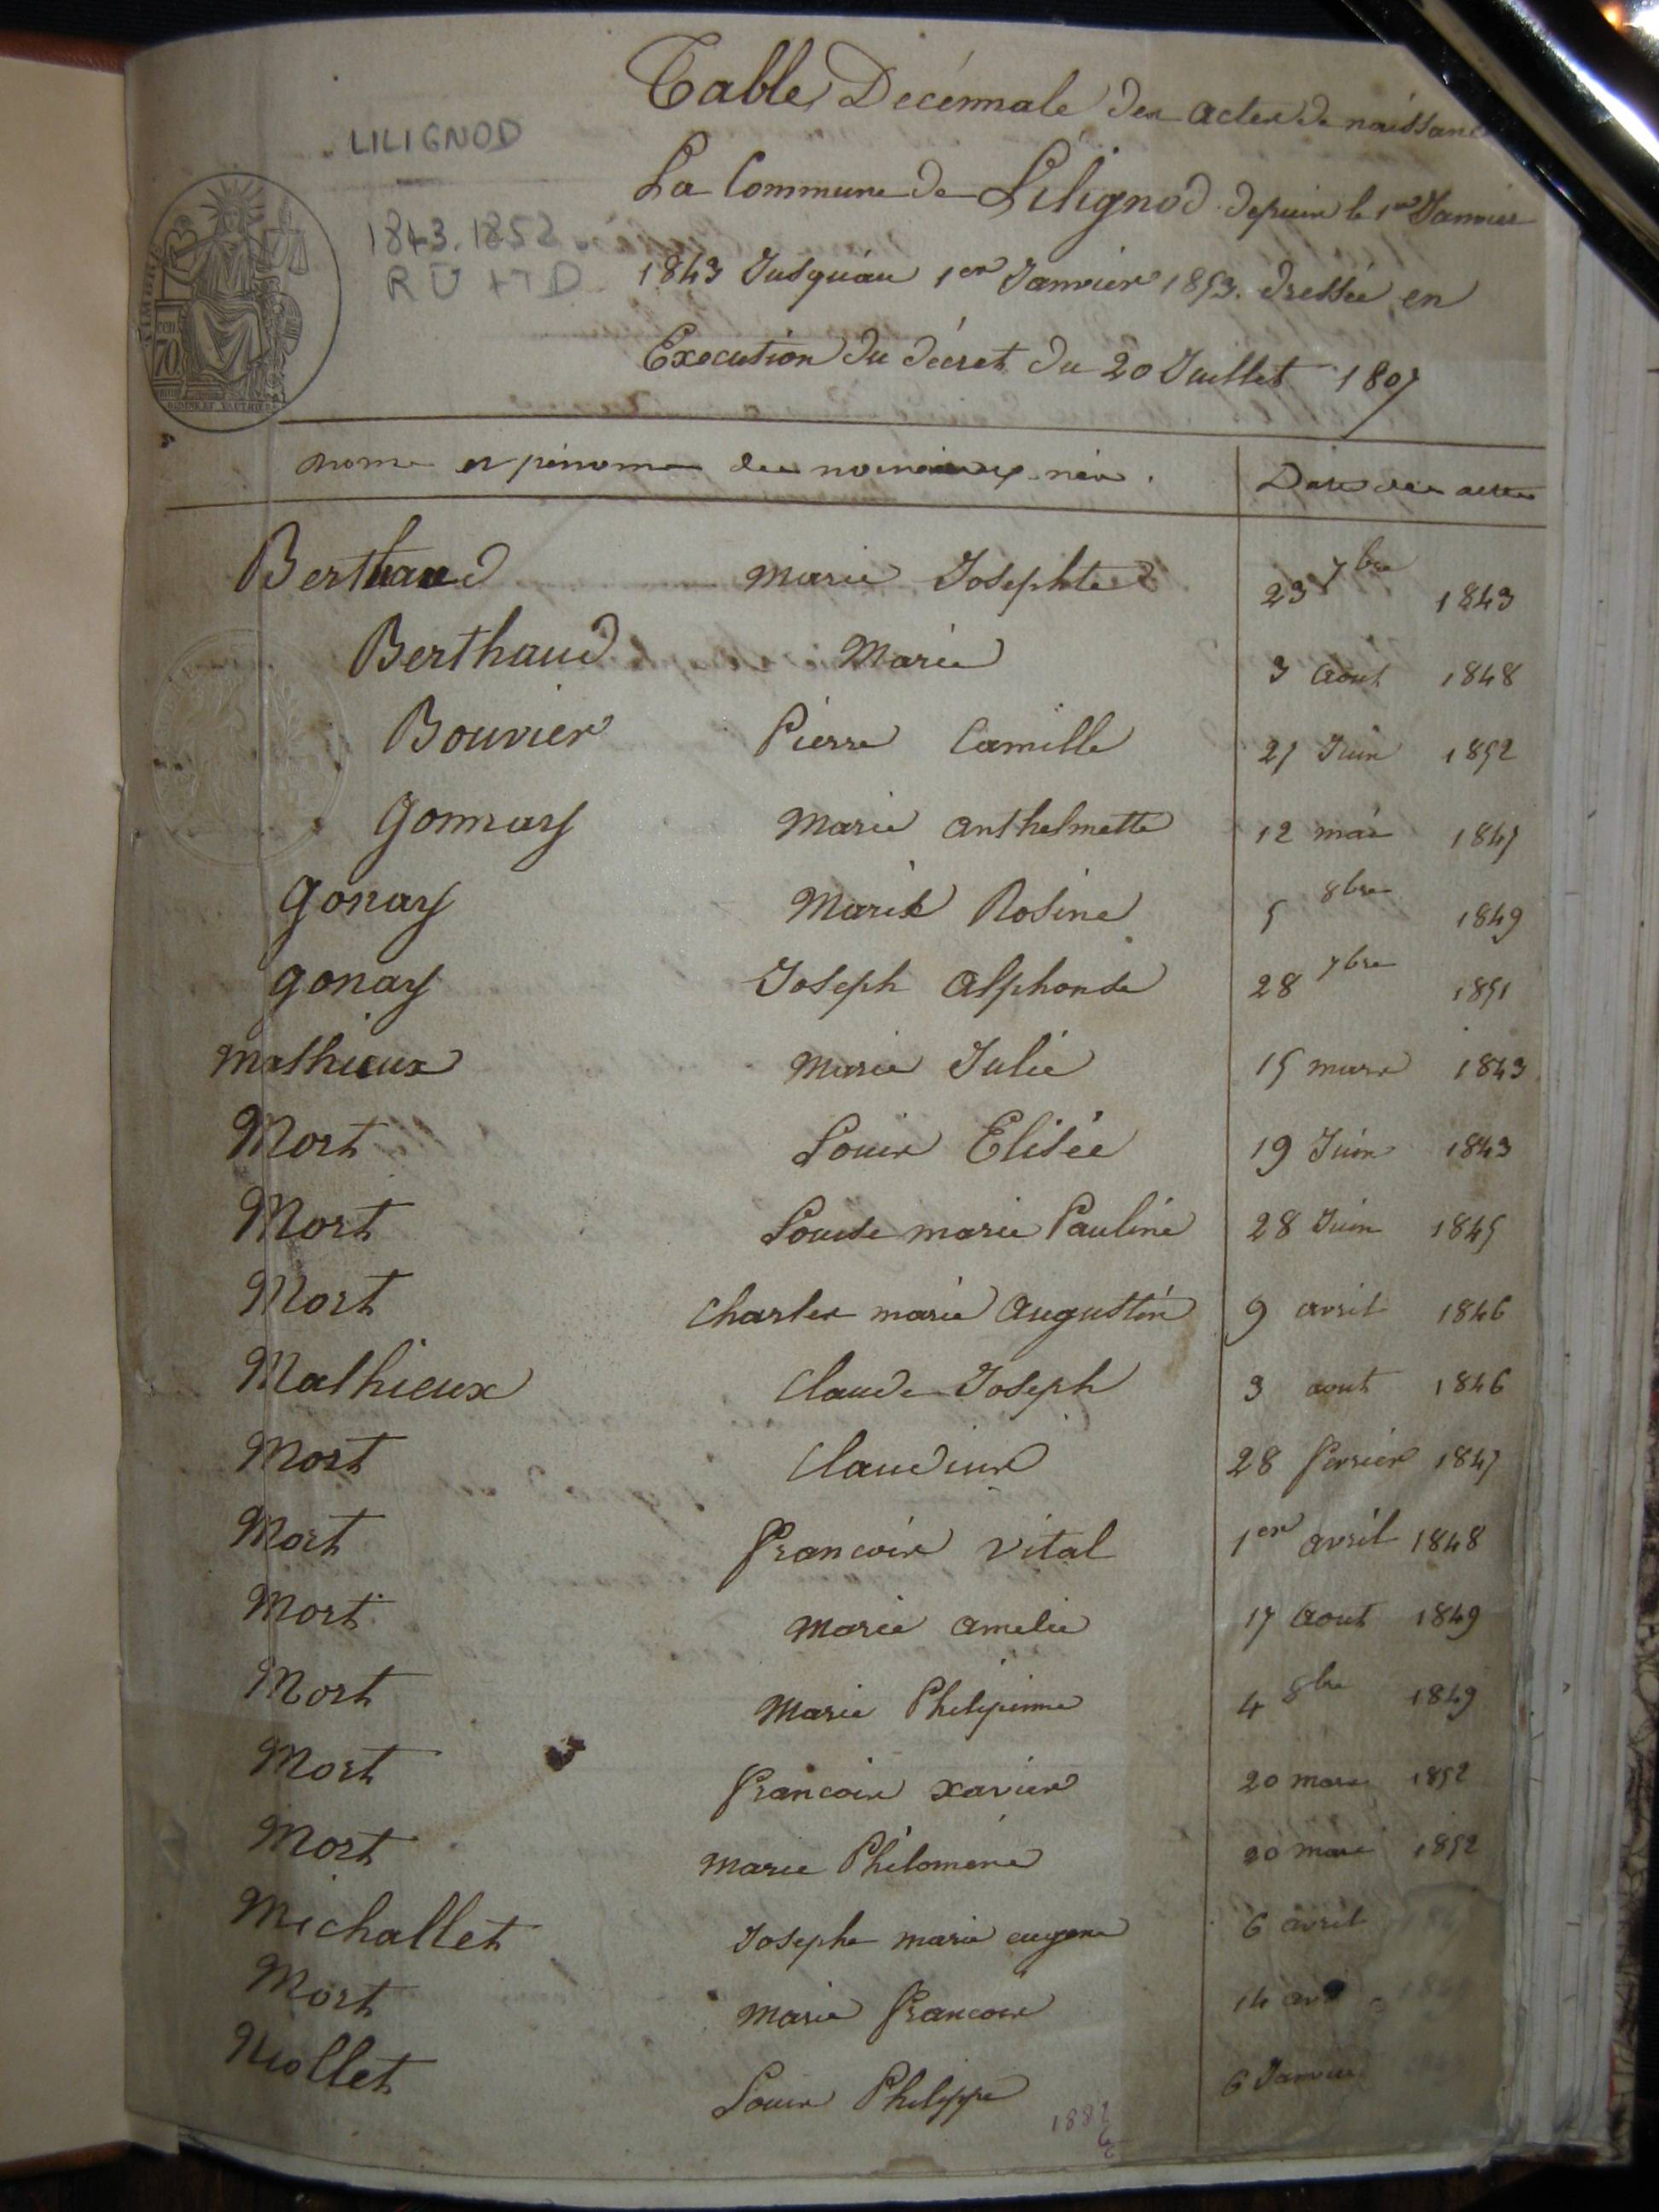 Table Décennale des actes de naissan
LILIGNOD
La Commune de Lilignod depuis le 1er Janvier
1843.1852
1843 Jusqu'au 1er Janvier 1853. dressée en
R U + T D
Execution du décret du 20 Juillet 1807
TIMBRE
70
noms et prénoms des nouveaux nés.
Dates des actes
Berthaud Marie Josephte 23 7bre 1843
Berthaud Marie 3 aout 1848
Bouvier Pierre Camille 21 Juin 1852
Gonnay Marie anthelmette 12 mai 1847
Gonay Marie Rosine 5 8bre 1849
Gonay Joseph alphonse 28 7bre 1851
Mathieux Marie Julie 15 mars 1843
Mort Louis Elisée 19 Juin 1843
Mort Louise marie Pauline 28 Juin 1845
Mort Charles marie Augustin 9 avril 1846
Mathieux Claude Joseph 3 aout 1846
Mort Claudius 28 fevrier 1847
Mort francois vital 1er avril 1848
Mort Marie amelie 17 aout 1849
Mort Marie Philipinne 4 8bre 1849
Mort francois xavier 20 mars 1852
Mort Marie Philomene 20 mars 1852
Michallet Josephe marie eugene 6 avril
Mort Marie francois 14
Niollet Louis Philippe 6 Janvier
188